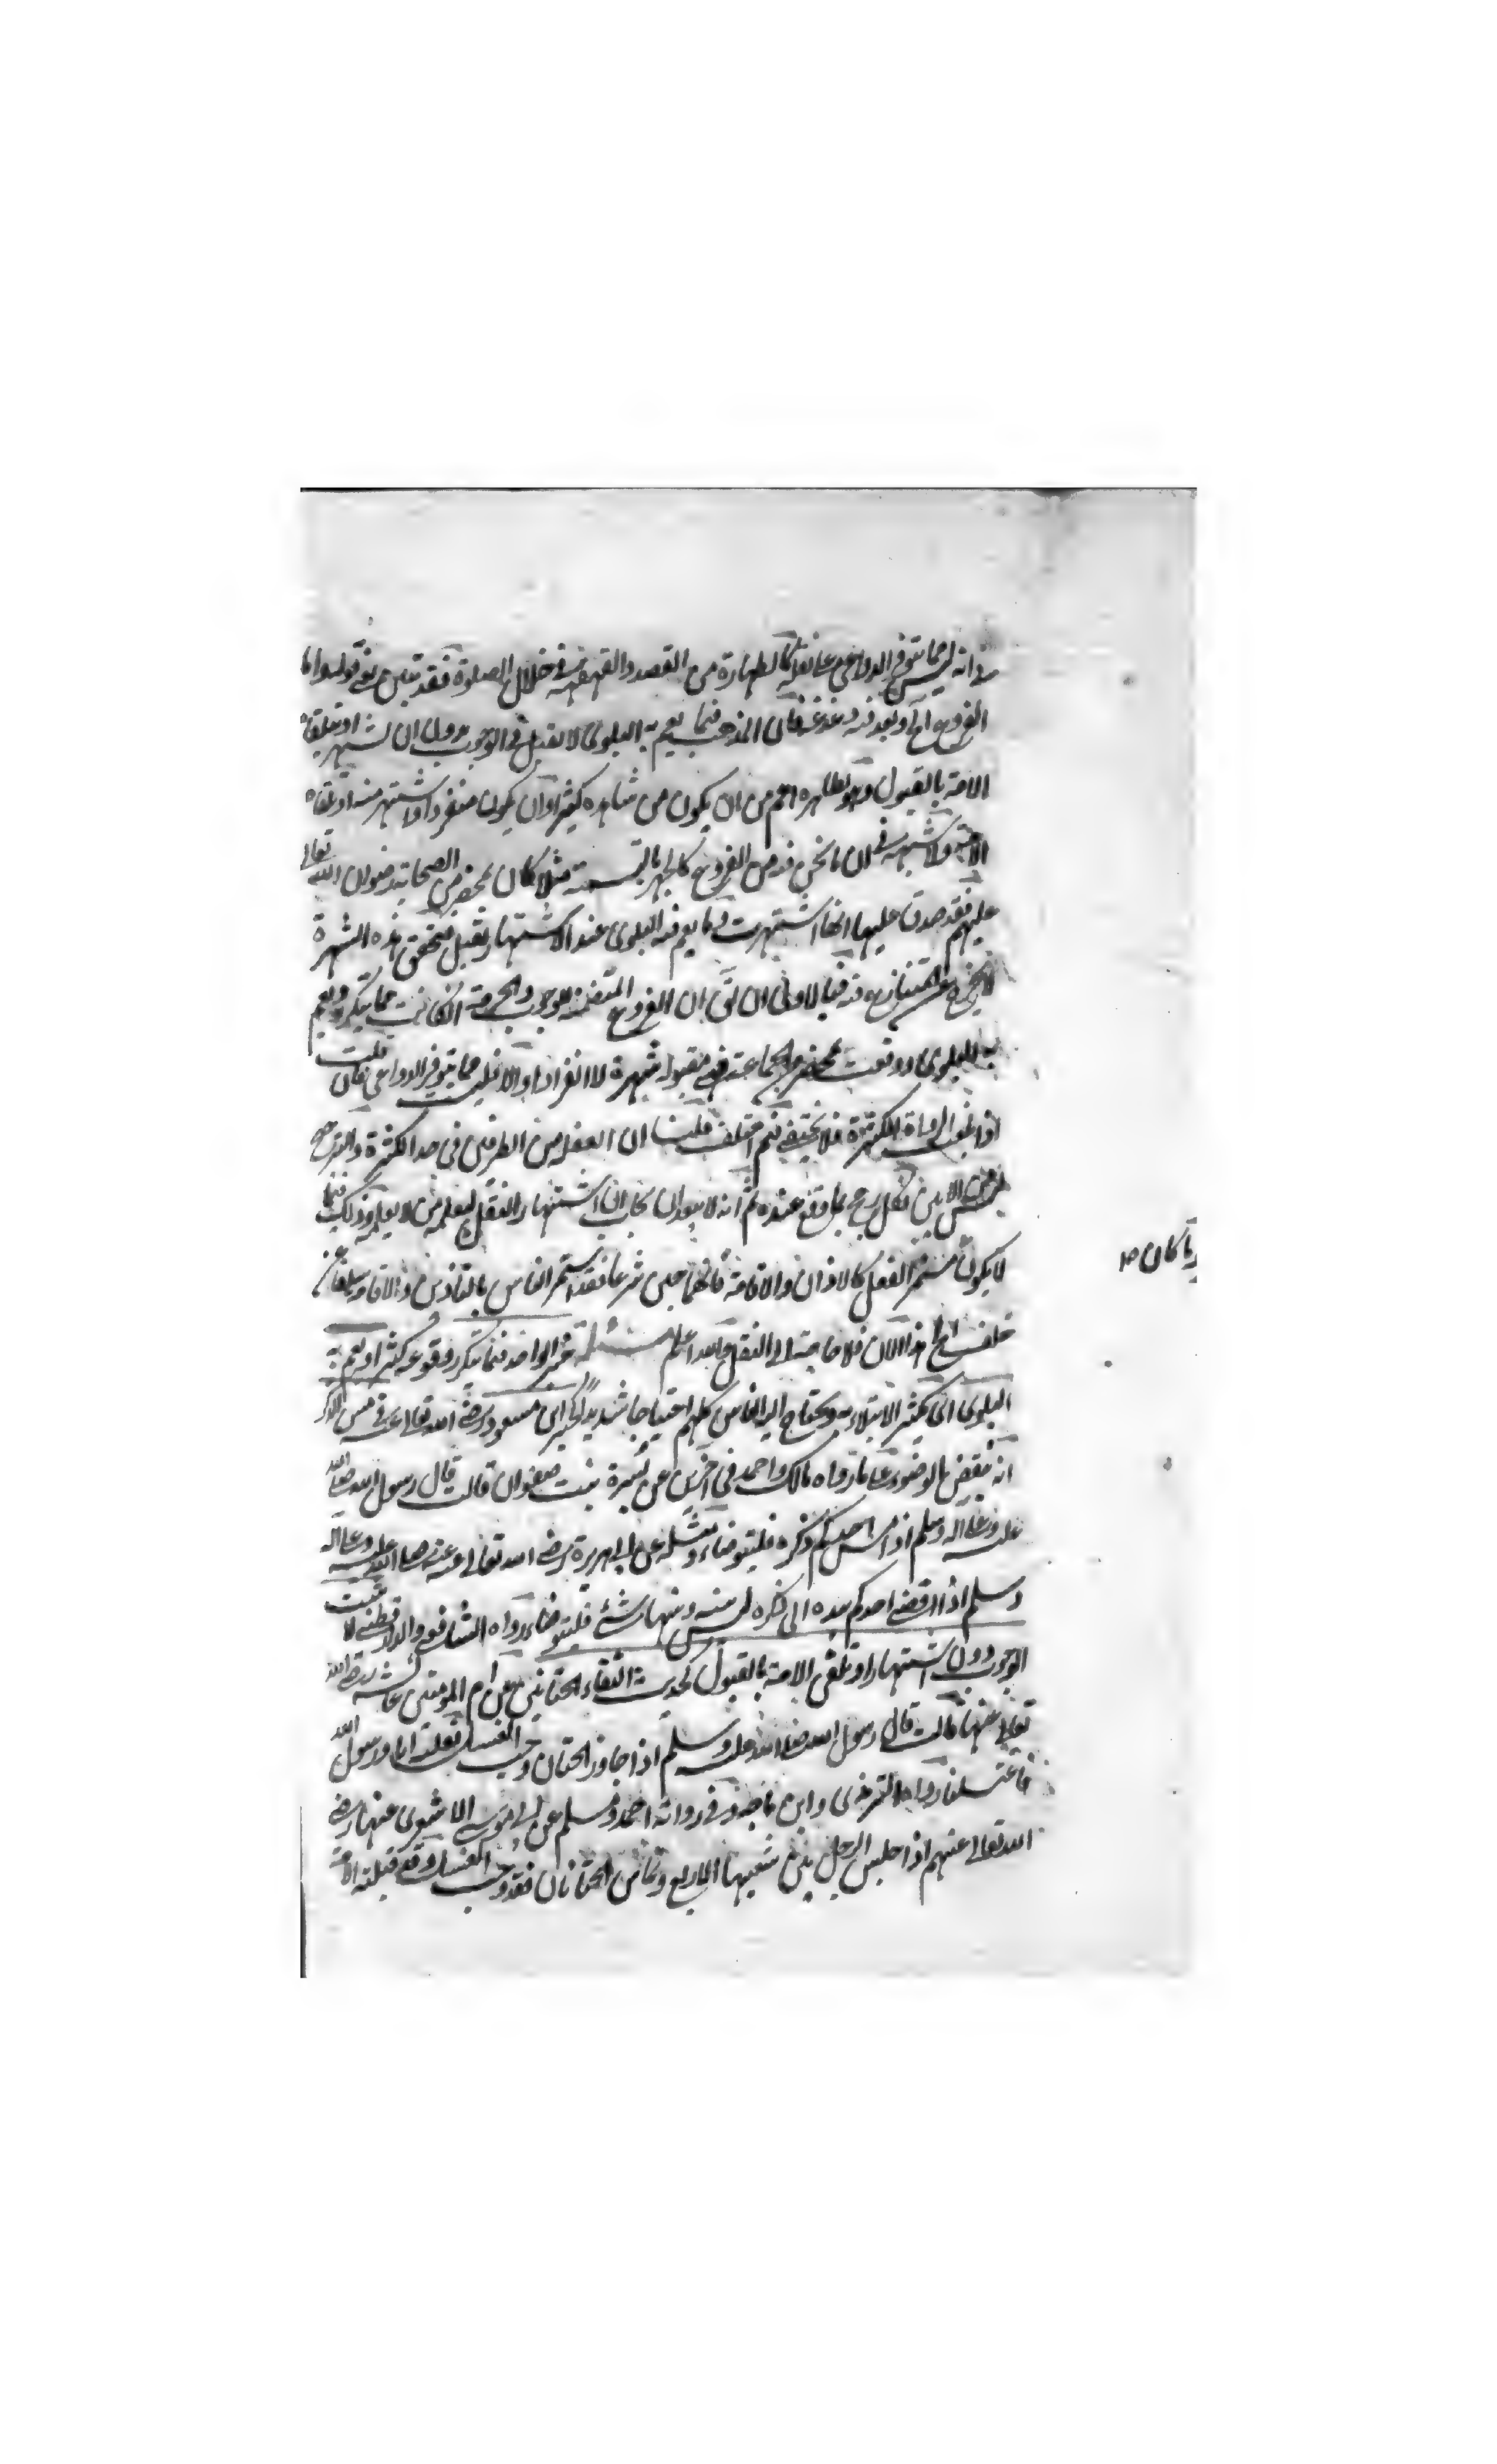 في انه ليس مما يتوفر الدواعي على نقله كالطهارة من الفصد والقهقهة في خلال الصلوة فقد تبين
الفروع وبعد فيه فان المذهب فيما يعم به البلوى لا تقبل في الوجوب بدون ان تشتهر او تلقاه
الامة بالقبول وهو بظاهره اعم من ان يكون من شاهده كثيرا وان يكون منفردا واشتهر منه او تلقاه
الامة ولا شبهة في ان ما نحن فيه من الفروع كالجهر بالتسمية مثلا كان بمحضر من الصحابة رضوان الله تعالى
عليهم فقد صدق عليها انها اشتهرت وما يعم فيه البلوى عند الاشتهار يقبل فتحقق هذه الشهرة
فيه فالاولى ان ان الفروع المتضمنة للوجوب والحرمة ان كانت مما يتكرر ويعم
به البلوى ووقعت بمحضر الجماعة فهي مقبولة شهرة لا انفرادا والا فليس مما يتوفر الدواعي فان قلت
اذا الرواة الكثرة فلا يختفي فلم اختلف قلنا ان من الطرفين في حد الكثرة والترجيح
فكل رجح بما وقع عنده ثم انه لا يبعد ان كان اشتهار النقل ليعلم من لا يعلم وذلك فيما
لا يكون مستمر الفعل كالاذان والاقامة فانهما حين شرعا فقد استمر الناس بالتأذين والاقامة سلفا عن
خلف الى هذا الآن فلا حاجة الى النقل والله اعلم مسئلة خبر الواحد فيما يتكرر وقوعه كثيرا ويعم به
البلوى اي يكثر الابتلاء به ويحتاج اليه الناس كلهم احتياجا شديدا كخبر ابن مسعود رضي الله تعالى عنه في مس الذكر
انه ينقض الوضوء على ما رواه مالك واحمد في آخرين عن بسرة بنت صفوان قالت قال رسول الله صلى الله
عليه وعلى آله وسلم اذا مس احدكم ذكره فليتوضأ ومثله عن ابي هريرة رضي الله تعالى عنه عنه صلى الله عليه وعلى آله
وسلم اذا افضى احدكم بيده الى ذكره ليس بينه وبينها شئ فليتوضأ رواه الشافعي والدارقطني لا يثبت
الوجوب دون اشتهار او تلقى الامة بالقبول كحديث التقاء الختانين عن ام المؤمنين عائشة رضي الله
تعالى عنها قالت قال رسول الله صلى الله عليه وسلم اذا جاوز الختان وجب الغسل فعلته انا ورسول الله
فاغتسلنا رواه الترمذي وابن ماجه وفي رواية احمد ومسلم عن ابي موسى الاشعري عنها رضي
الله تعالى عنهم اذا جلس الرجل بين شعبها الاربع ومس الختان الختان فقد وجب الغسل وقد قبلته الامة
ما كان صـ